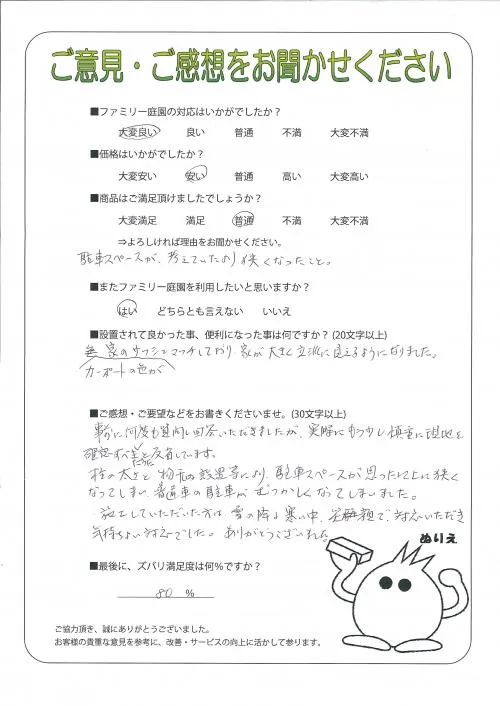 ご意見・ご感想をお聞かせください
■ファミリー庭園の対応はいかがでしたか？
大変良い 良い 普通 不満 大変不満
■価格はいかがでしたか？
大変安い 安い 普通 高い 大変高い
■商品はご満足頂けましたでしょうか？
大変満足 満足 普通 不満 大変不満
⇒よろしければ理由をお聞かせください。
駐車スペースが、考えていたより狭くなったこと。
■またファミリー庭園を利用したいと思いますか？
はい どちらとも言えない いいえ
■設置されて良かった事、便利になった事は何ですか？(20文字以上)
家のサッシとマッチしており、家が大きく立派に見えるようになりました。
カーポートの色が
■ご感想・ご要望などをお書きくださいませ。(30文字以上)
事前に何度も質問し回答いただきましたが、実際にもう少し慎重に現地を
確認すべきだったと反省しています。
柱の太さと物置の設置等により、駐車スペースが思った以上に狭く
なってしまい、普通車の駐車がむつかしくなってしまいました。
施工していただいた方は、雪の降る寒い中、笑顔で、対応いただき
気持ちよい対応でした。ありがとうございました。
ぬりえ
■最後に、ズバリ満足度は何％ですか？
80 %
ご協力頂き、誠にありがとうございました。
お客様の貴重な意見を参考に、改善・サービスの向上に活かして参ります。